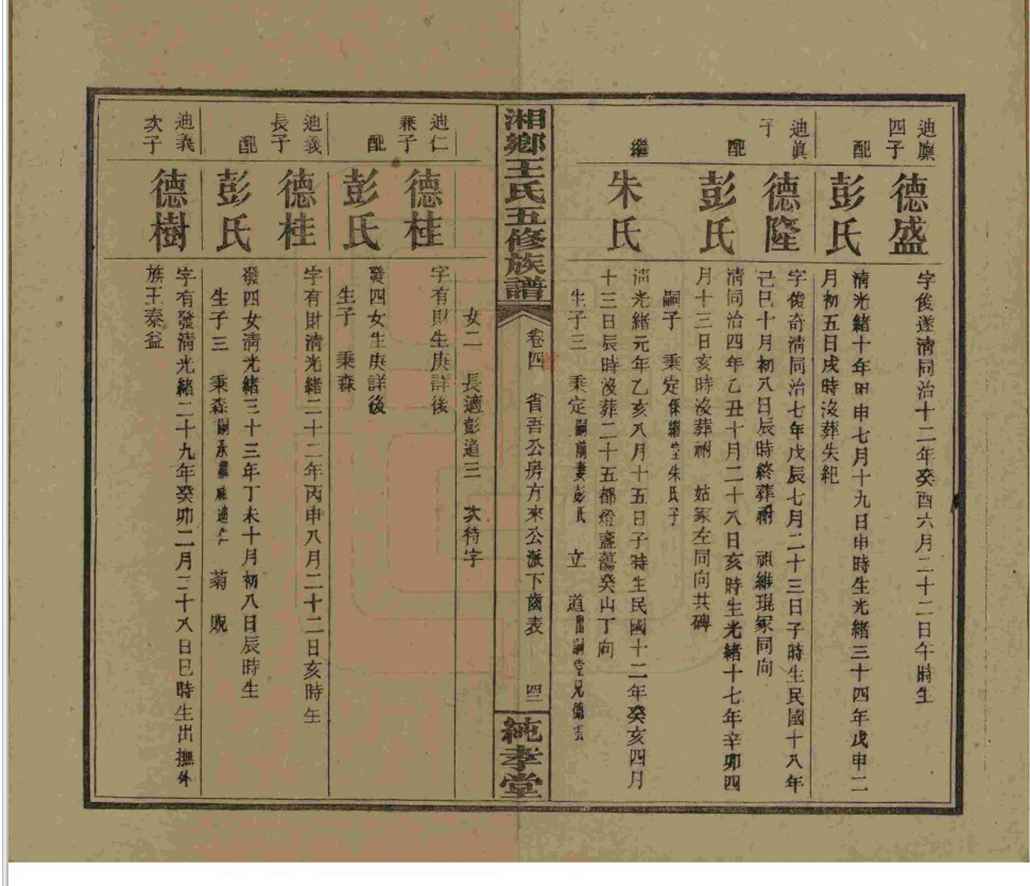 迪廉四子
德盛
字俊遂清同治十二年癸酉六月二十二日午時生
配
彭氏
清光緒十年甲申七月十九日申時生光緒三十四年戊申二
月初五日戌時沒葬失紀
迪眞子
德隆
字俊奇清同治七年戊辰七月二十三日子時生民國十八年
己巳十月初八日辰時終葬 維琨冢同向
配
彭氏
清同治四年乙丑十月二十八日亥時生光緒十七年辛卯四
月十三日亥時沒葬祔 姑冢左同向共碑
嗣子 秉定係繼室朱氏子
繼
朱氏
清光緒元年乙亥八月十五日子時生民國十二年癸亥四月
十三日辰時沒葬二十五都燈盞蕩癸山丁向
生子三 秉定嗣前妻彭氏 立 道出嗣堂兄德
湘鄉王氏五修族譜
卷四 省吾公房方來公派下齒表
純孝堂
女二 長適彭道三 次待字
迪仁兼子
德桂
字有財生庚詳後
配
彭氏
發四女生庚詳後
生子 秉森
迪義長子
德桂
字有財清光緒二十二年丙申八月二十二日亥時生
配
彭氏
發四女清光緒三十三年丁未十月初八日辰時生
生子三 秉森嗣永繼 迪仁 菊 貺
迪義次子
德樹
字有發清光緒二十九年癸卯二月二十八日巳時生出撫外
族王泰益